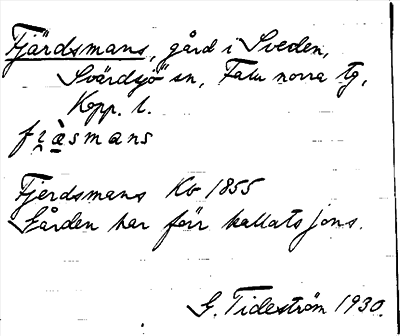 Fjärdsmans, gård i Sveden,
Svärdsjö sn, Falu norra tg,
Kopp. l.
fi̯à̱smans
Fjerdsmans Kb 1855
Gården har förr kallats Jons.
G. Tideström 1930.